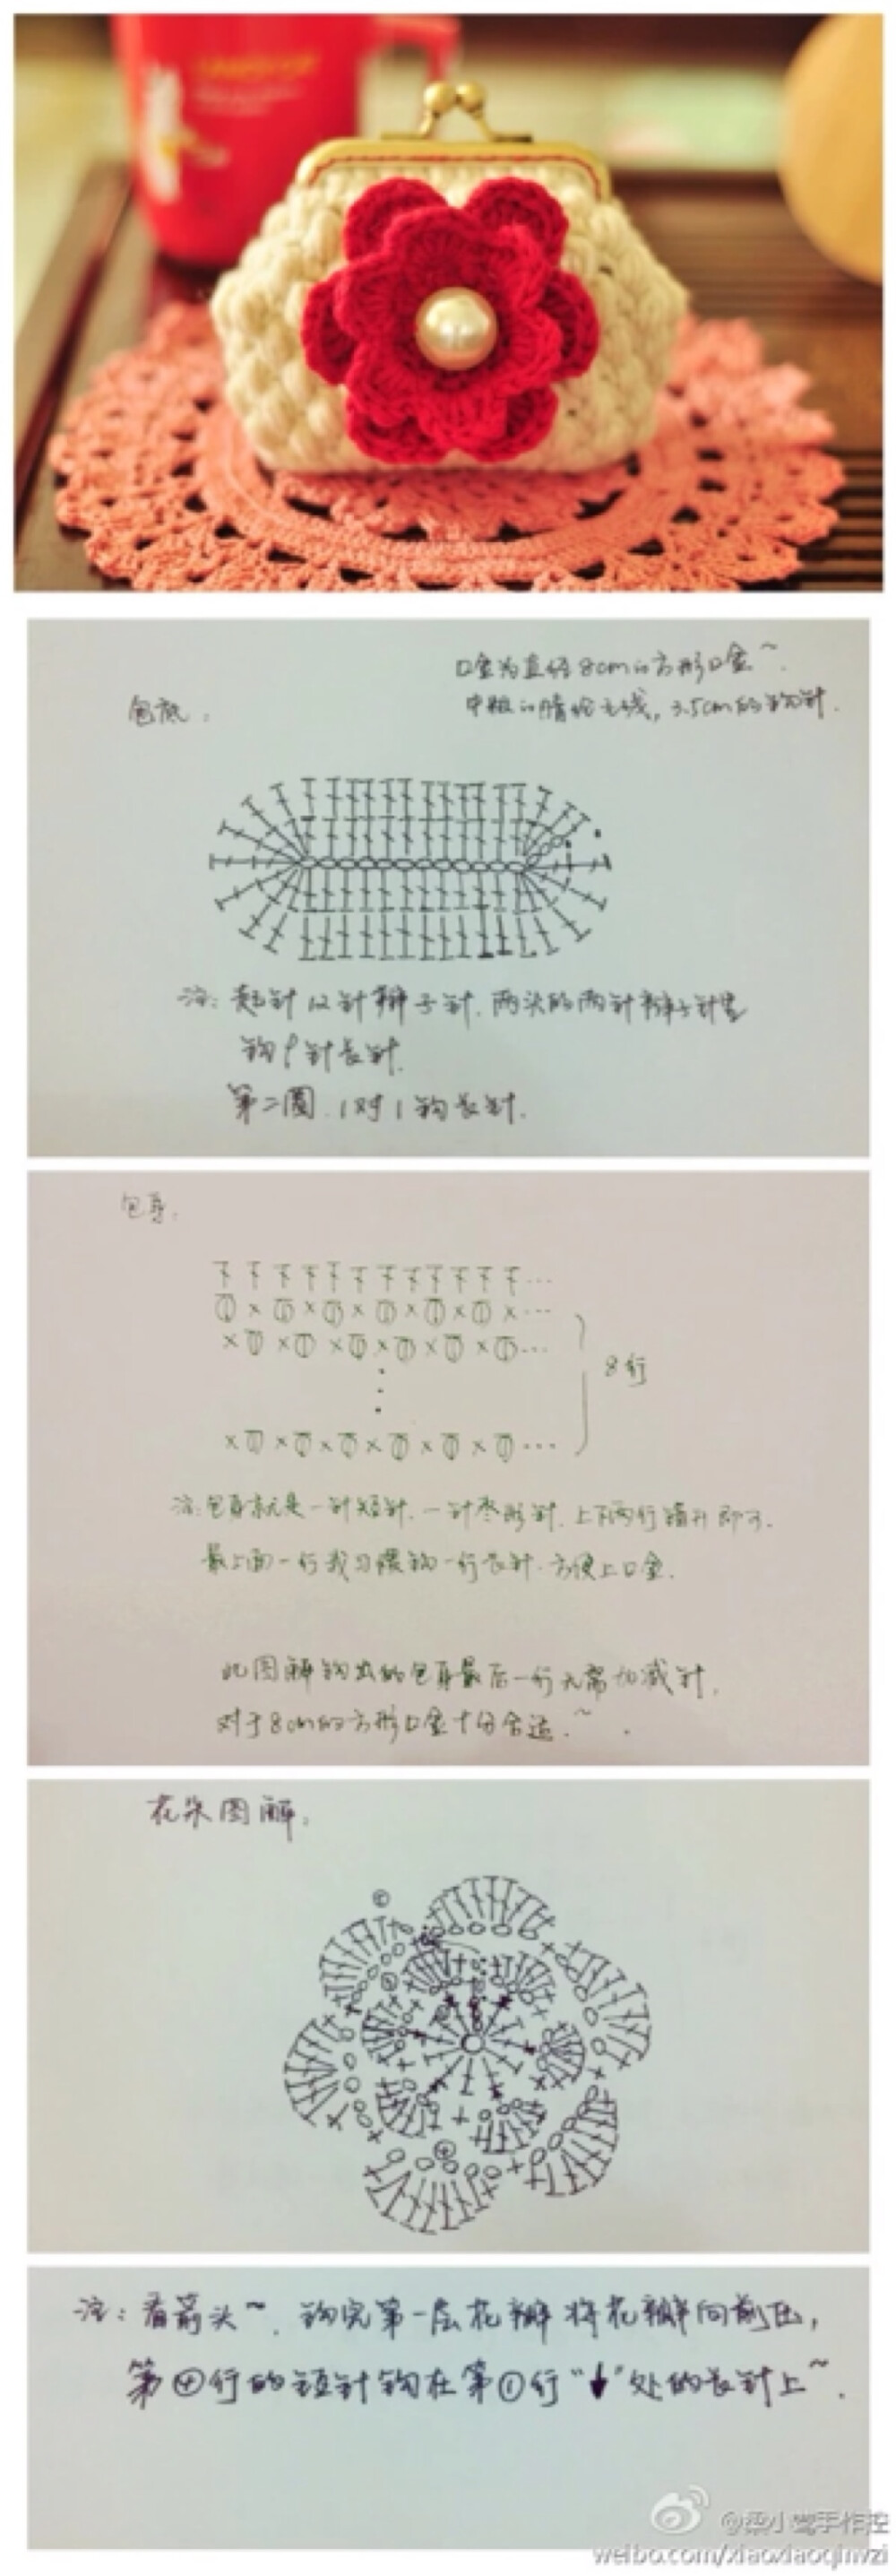 口金为直径8cm的方形口金~.
包底:
中粗的腈纶毛线, 3.5cm的钩针.
注: 起针12针辫子针, 两头的两针辫子针里
钩9针长针.
第二圈, 1对1钩长针.
包身:
8行
注: 包身就是一针短针, 一针枣形针, 上下两行错开即可.
最上面一行我习惯钩一行长针, 方便上口金.
此图解钩出的包身最后一行无需加减针,
对于8cm的方形口金十分合适.~
花朵图解:
注: 看箭头~. 钩完第一层花瓣将花瓣向前压,
第④行的短针钩在第①行“↓”处的长针上~.
@梁小鹭手作控
weibo.com/xiaoxiaoqinvzi